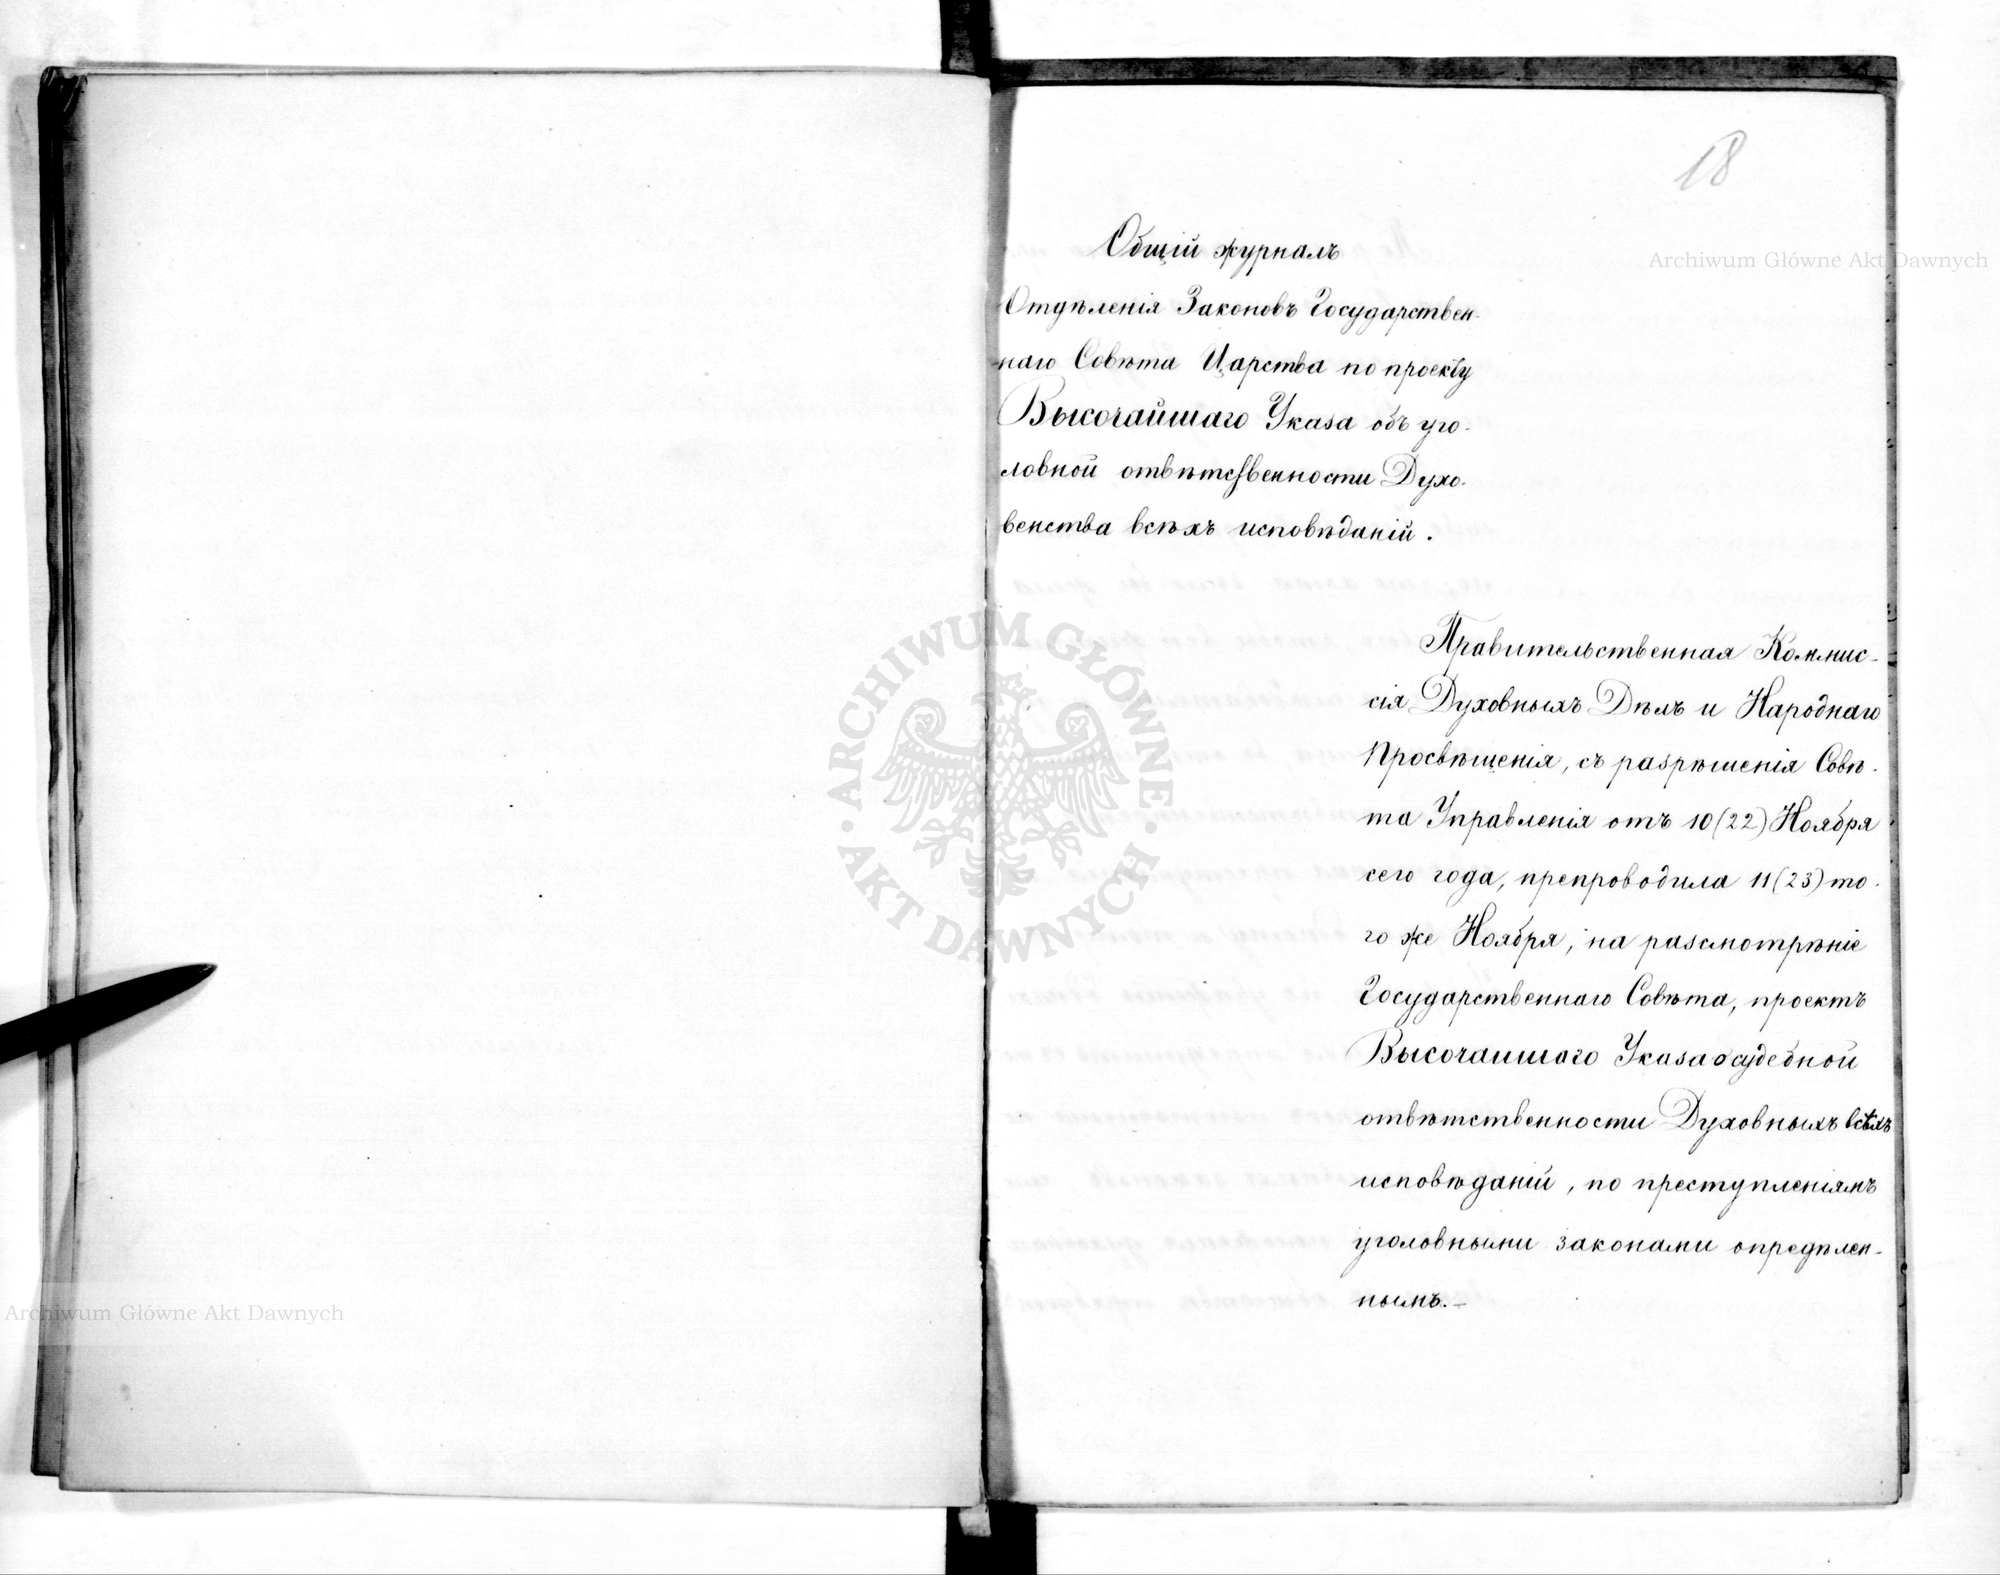 18
Общій журналъ
Отдѣленія Законовъ Государствен-
наго Совѣта Царства по проекту
Высочайшаго Указа объ уго-
ловной отвѣтственности Духо-
венства всѣхъ исповѣданій.
Правительственная Коммис-
сія Духовныхъ Дѣлъ и Народнаго
Просвѣщенія, съ разрѣшенія Совѣ-
та Управленія отъ 10 (22) Ноября
сего года, препроводила 11 (23) то-
го же Ноября, на разсмотрѣніе
Государственнаго Совѣта, проектъ
Высочаишаго Указа о судебной
отвѣтственности Духовныхъ всѣхъ
исповѣданій, по преступленіямъ
уголовными законами опредѣлен-
нымъ.-
Archiwum Główne Akt Dawnych
ARCHIWUM GŁÓWNE
AKT DAWNYCH
Archiwum Główne Akt Dawnych